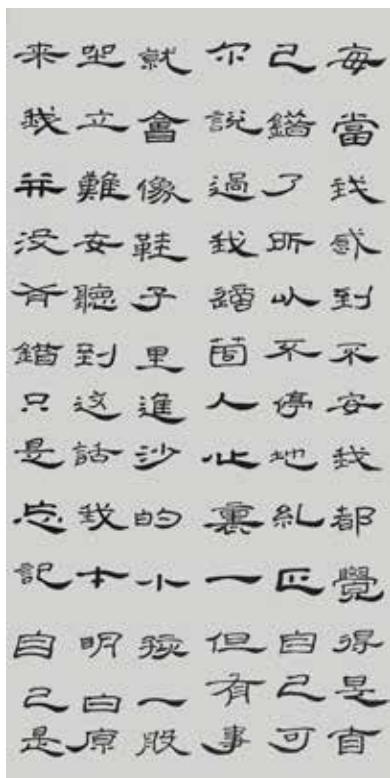 每當我感到不安我都覺得是自
己錯了所以不停地糾正自己可
尔說過我箇人心裏一但有事
就會像鞋子里進沙的小孩一般
坐立難安聽到这話我本明白原
来我并没有錯只是忘記自己是